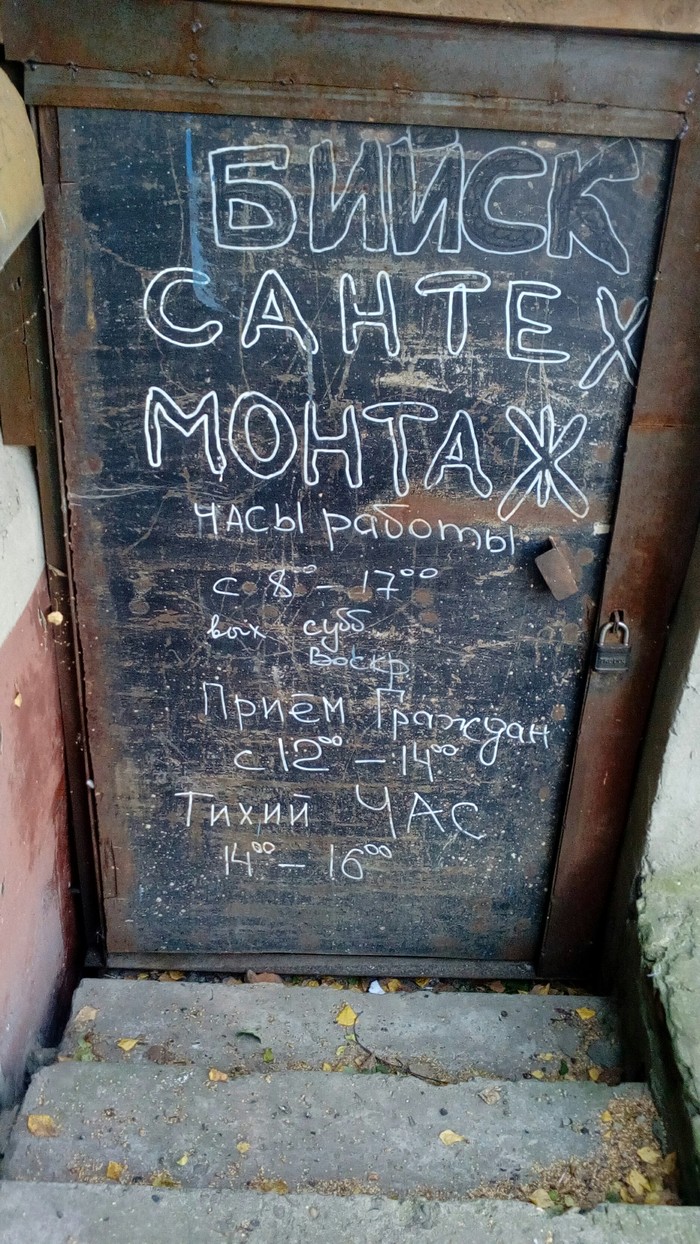 БИЙСК
САНТЕХ
МОНТАЖ
ЧАСЫ работы
с 8°° – 17°°
вых субб
воскр
Приём Граждан
с 12°° – 14°°
Тихий ЧАС
14°° – 16°°